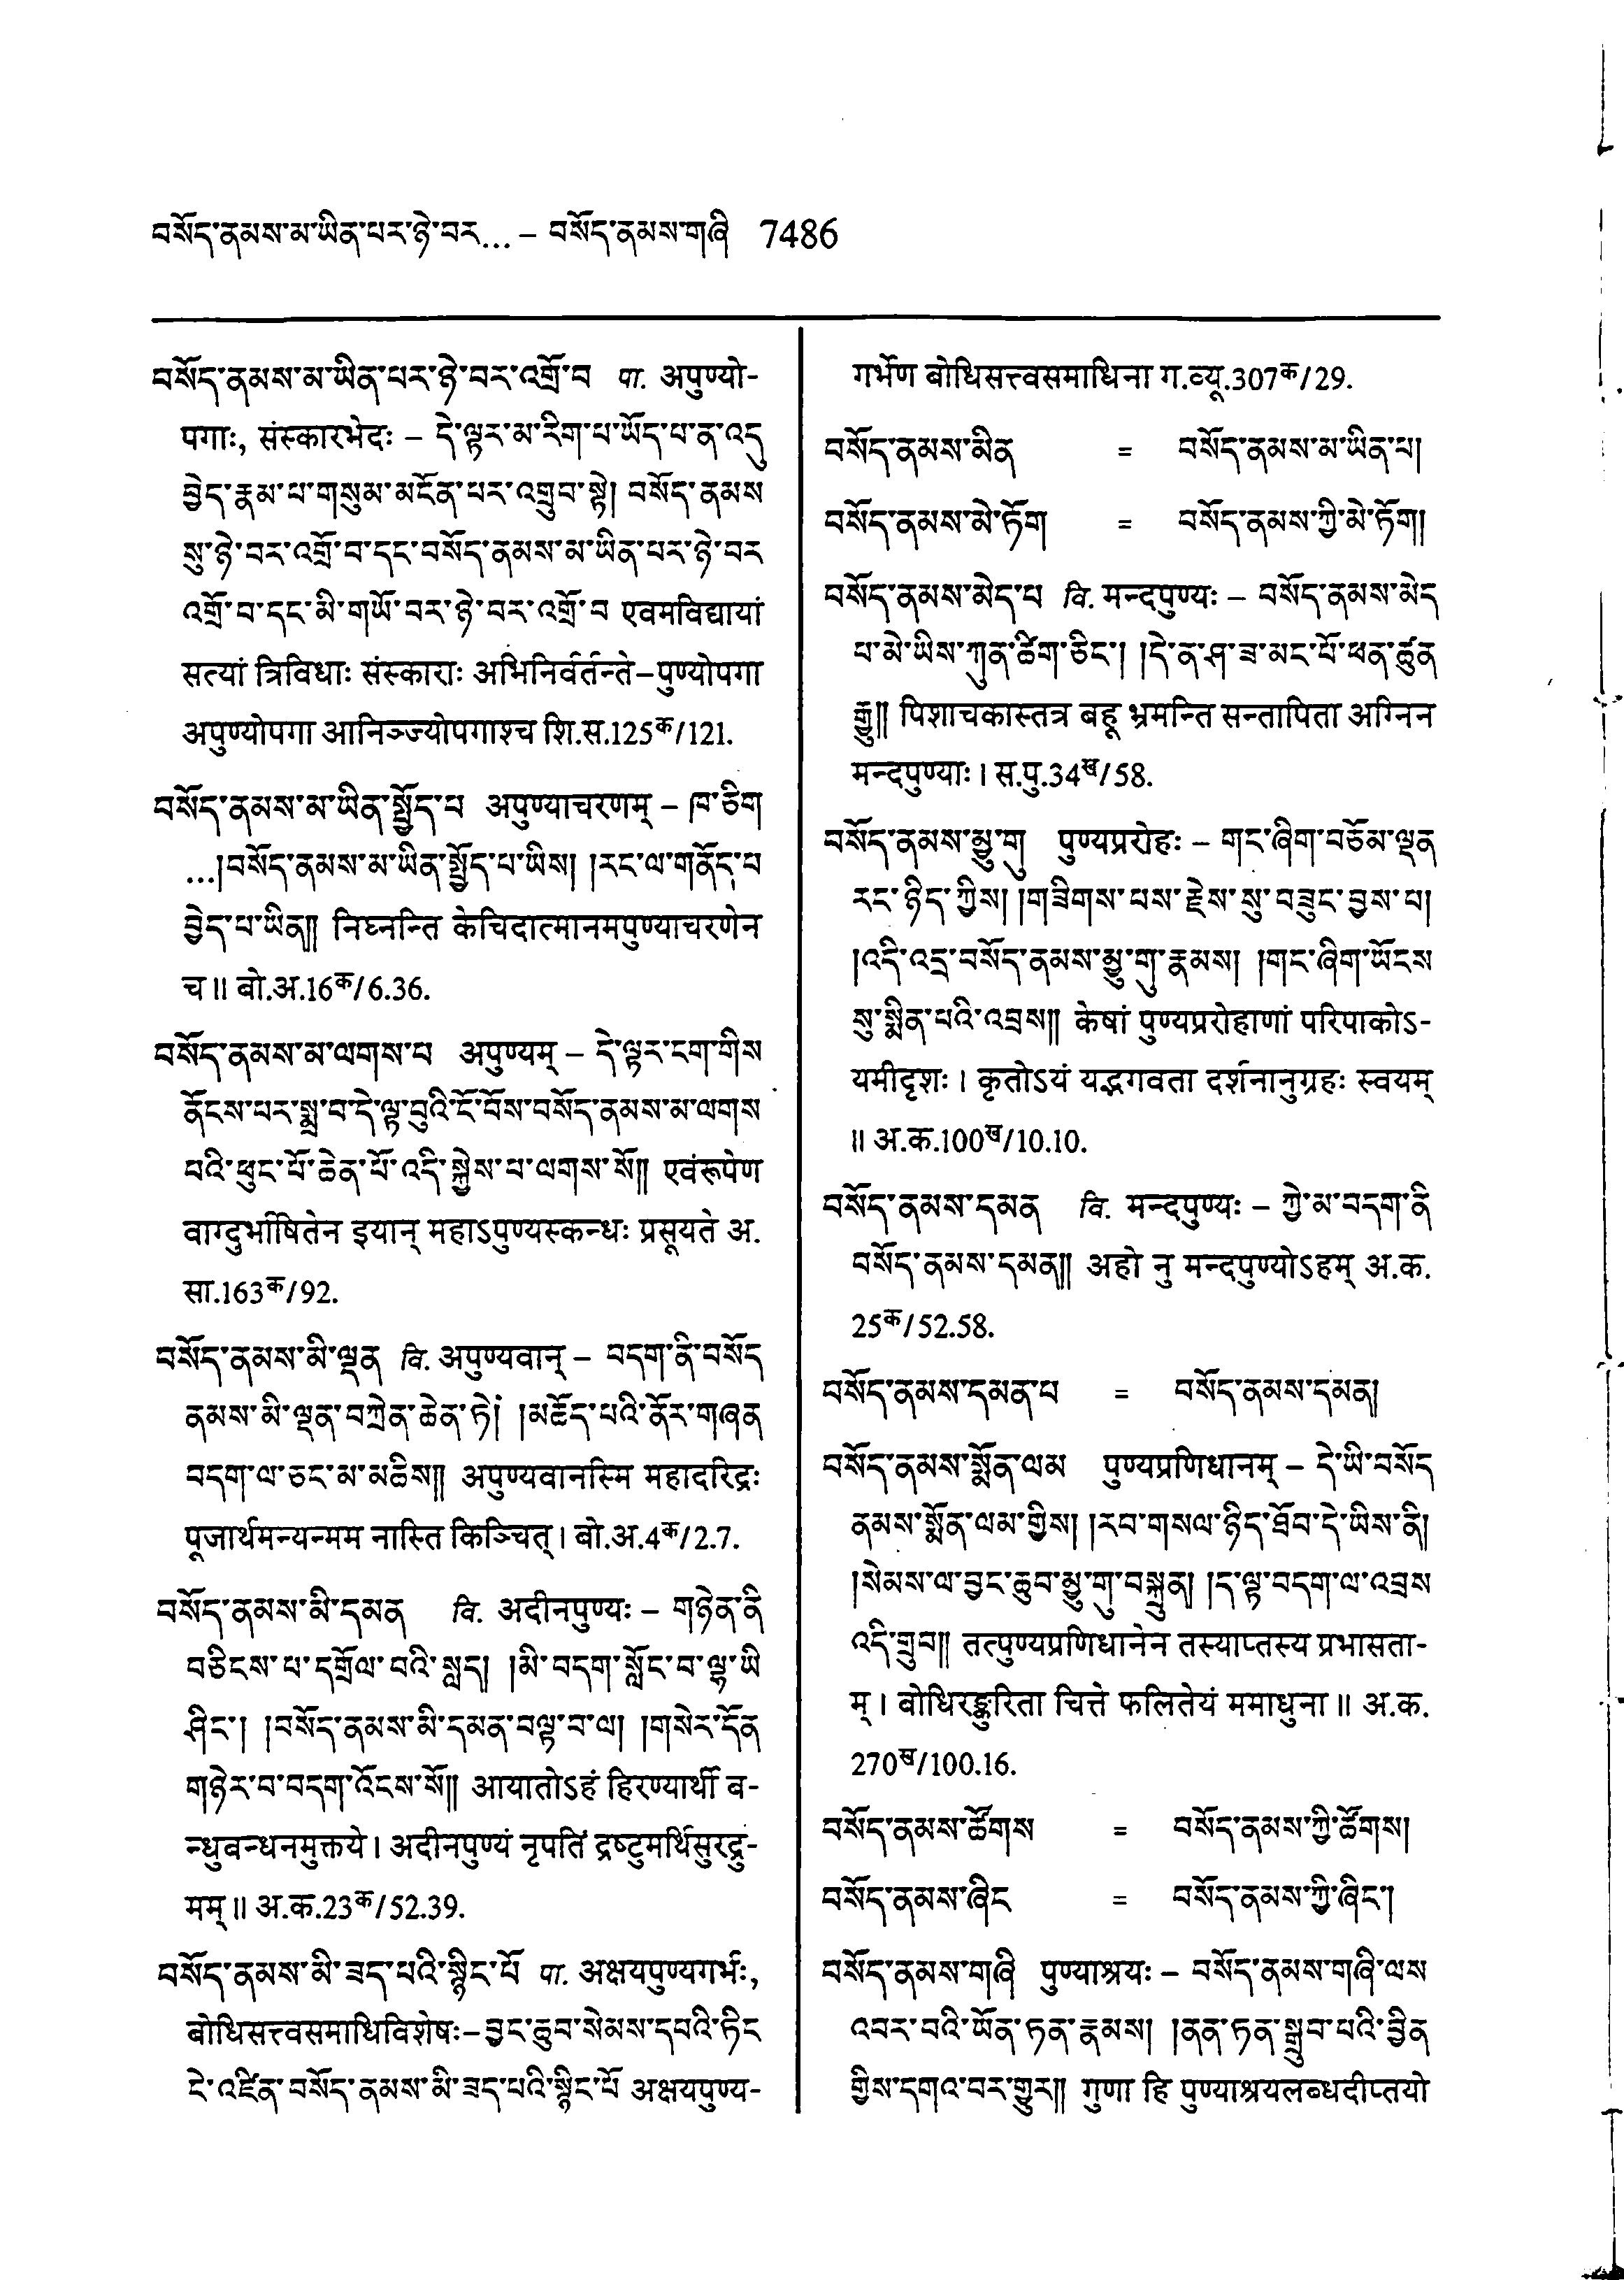 བསོད་ནམས་མ་ཡིན་པར་ཉེ་བར... – བསོད་ནམས་གཞི 7486
བསོད་ནམས་མ་ཡིན་པར་ཉེ་བར་འགྲོ་བ पा. अपुण्यो-
पगाः, संस्कारभेदः – དེ་ལྟར་མ་རིག་པ་ཡོད་པ་ན་འདུ
བྱེད་རྣམ་པ་གསུམ་མངོན་པར་འགྲུབ་སྟེ། བསོད་ནམས
སུ་ཉེ་བར་འགྲོ་བ་དང་བསོད་ནམས་མ་ཡིན་པར་ཉེ་བར
འགྲོ་བ་དང་མི་གཡོ་བར་ཉེ་བར་འགྲོ་བ एवमविद्यायां
सत्यां त्रिविधाः संस्काराः अभिनिर्वर्तन्ते–पुण्योपगा
अपुण्योपगा आनिञ्ज्योपगाश्च शि.स.125क/121.
བསོད་ནམས་མ་ཡིན་སྤྱོད་པ अपुण्याचरणम् – ཁ་ཅིག
...།བསོད་ནམས་མ་ཡིན་སྤྱོད་པ་ཡིས། །རང་ལ་གནོད་པ
བྱེད་པ་ཡིན།། निघ्नन्ति केचिदात्मानमपुण्याचरणेन
च॥ बो.अ.16क/6.36.
བསོད་ནམས་མ་ལགས་པ अपुण्यम् – དེ་ལྟར་ངག་གིས
ནོངས་པར་སྨྲ་བ་དེ་ལྟ་བུའི་ངོ་བོས་བསོད་ནམས་མ་ལགས
པའི་ཕུང་པོ་ཆེན་པོ་འདི་སྐྱེས་པ་ལགས་སོ།། एवंरूपेण
वाग्दुर्भाषितेन इयान् महाऽपुण्यस्कन्धः प्रसूयते अ.
सा.163क/92.
བསོད་ནམས་མི་ལྡན वि. अपुण्यवान् – བདག་ནི་བསོད
ནམས་མི་ལྡན་བཀྲེན་ཆེན་ཏེ། །མཆོད་པའི་ནོར་གཞན
བདག་ལ་ཅང་མ་མཆིས།། अपुण्यवानस्मि महादरिद्रः
पूजार्थमन्यन्मम नास्ति किञ्चित्। बो.अ.4क/2.7.
བསོད་ནམས་མི་དམན वि. अदीनपुण्यः – གཉེན་ནི
བཅིངས་པ་དགྲོལ་བའི་སླད། །མི་བདག་སློང་བ་ལྷ་ཡི
ཤིང་། །བསོད་ནམས་མི་དམན་བལྟ་བ་ལ། །གསེར་དོན
གཉེར་བ་བདག་འོངས་སོ།། आयातोऽहं हिरण्यार्थी ब-
न्धुवन्धनमुक्तये। अदीनपुण्यं नृपतिं द्रष्टुमर्थिसुरद्रु-
मम्॥ अ.क.23क/52.39.
བསོད་ནམས་མི་ཟད་པའི་སྙིང་པོ पा. अक्षयपुण्यगर्भः,
बोधिसत्त्वसमाधिविशेषः–བྱང་ཆུབ་སེམས་དཔའི་ཏིང
ངེ་འཛིན་བསོད་ནམས་མི་ཟད་པའི་སྙིང་པོ अक्षयपुण्य-
गर्भेण बोधिसत्त्वसमाधिना ग.व्यू.307क/29.
བསོད་ནམས་མིན = བསོད་ནམས་མ་ཡིན་པ།
བསོད་ནམས་མེ་ཏོག = བསོད་ནམས་ཀྱི་མེ་ཏོག།
བསོད་ནམས་མེད་པ वि. मन्दपुण्यः – བསོད་ནམས་མེད
པ་མེ་ཡིས་ཀུན་ཚིག་ཅིང་། །དེ་ན་ཤ་ཟ་མང་པོ་ཕན་ཚུན
རྒྱུ།། पिशाचकास्तत्र बहू भ्रमन्ति सन्तापिता अग्निन
मन्दपुण्याः। स.पु.34ख/58.
བསོད་ནམས་མྱུ་གུ पुण्यप्ररोहः – གང་ཞིག་བཅོམ་ལྡན
རང་ཉིད་ཀྱིས། །གཟིགས་པས་རྗེས་སུ་བཟུང་བྱས་པ།
།འདི་འདྲ་བསོད་ནམས་མྱུ་གུ་རྣམས། །གང་ཞིག་ཡོངས
སུ་སྨིན་པའི་འབྲས།། केषां पुण्यप्ररोहाणां परिपाकोऽ-
यमीदृशः। कृतोऽयं यद्भगवता दर्शनानुग्रहः स्वयम्
॥ अ.क.100ख/10.10.
བསོད་ནམས་དམན वि. मन्दपुण्यः – ཀྱེ་མ་བདག་ནི
བསོད་ནམས་དམན།། अहो नु मन्दपुण्योऽहम् अ.क.
25क/52.58.
བསོད་ནམས་དམན་པ = བསོད་ནམས་དམན།
བསོད་ནམས་སྨོན་ལམ पुण्यप्रणिधानम् – དེ་ཡི་བསོད
ནམས་སྨོན་ལམ་གྱིས། །རབ་གསལ་ཉིད་ཐོབ་དེ་ཡིས་ནི།
།སེམས་ལ་བྱང་ཆུབ་མྱུ་གུ་བསྐྲུན། །ད་ལྟ་བདག་ལ་འབྲས
འདི་གྲུབ།། तत्पुण्यप्रणिधानेन तस्याप्तस्य प्रभासता-
म्। बोधिरङ्कुरिता चित्ते फलितेयं ममाधुना॥ अ.क.
270ख/100.16.
བསོད་ནམས་ཚོགས = བསོད་ནམས་ཀྱི་ཚོགས།
བསོད་ནམས་ཞིང = བསོད་ནམས་ཀྱི་ཞིང་།
བསོད་ནམས་གཞི पुण्याश्रयः – བསོད་ནམས་གཞི་ལས
འབར་བའི་ཡོན་ཏན་རྣམས། །ནན་ཏན་སྒྲུབ་པའི་བྱིན
གྱིས་དགའ་བར་གྱུར།། गुणा हि पुण्याश्रयलब्धदीप्तयो